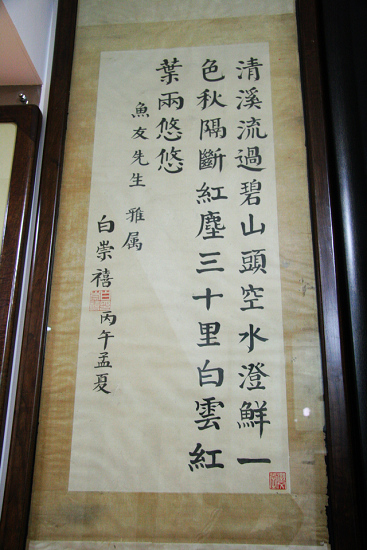 清溪流過碧山頭空水澄鮮一
色秋隔斷紅塵三十里白雲紅
葉兩悠悠
魚友先生 雅属
白崇禧 丙午孟夏